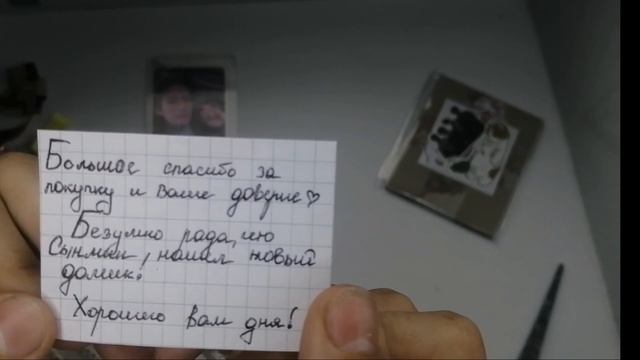 Большое спасибо за
покупку и ваше доверие♡
Безумно рада, что
Сынмин, нашел новый
домик!
Хорошего вам дня!